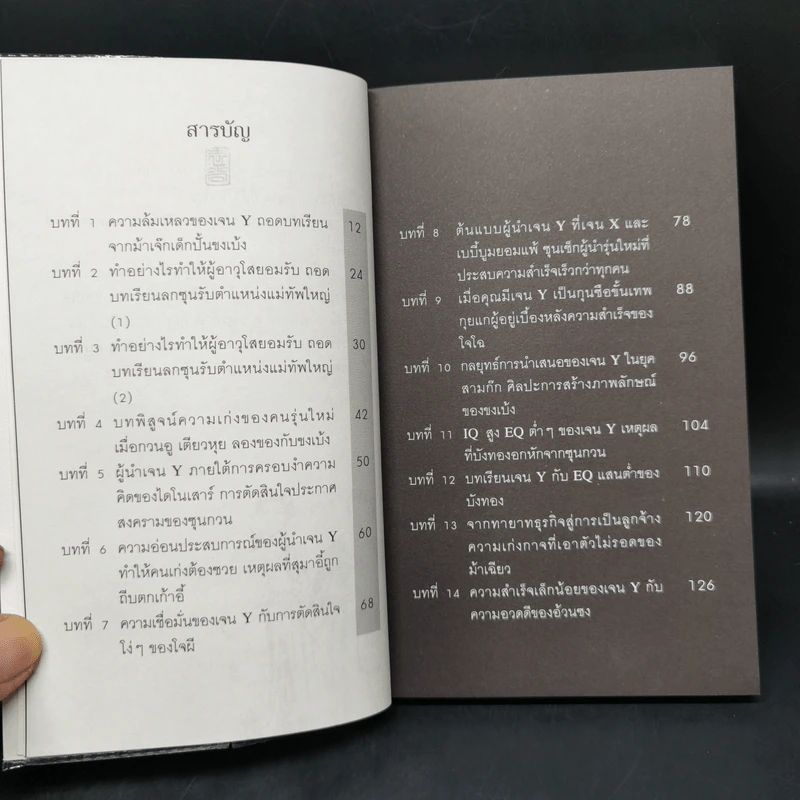 สารบัญ
บทที่ 1 ความล้มเหลวของเจน Y ถอดบทเรียน 12
จากม้าเจ๊กเด็กปั้นขงเบ้ง
บทที่ 2 ทำอย่างไรทำให้ผู้อาวุโสยอมรับ ถอด 24
บทเรียนลกซุนรับตำแหน่งแม่ทัพใหญ่
(1)
บทที่ 3 ทำอย่างไรทำให้ผู้อาวุโสยอมรับ ถอด 30
บทเรียนลกซุนรับตำแหน่งแม่ทัพใหญ่
(2)
บทที่ 4 บทพิสูจน์ความเก่งของคนรุ่นใหม่ 42
เมื่อกวนอู เตียวหุย ลองของกับขงเบ้ง
บทที่ 5 ผู้นำเจน Y ภายใต้การครอบงำความ 50
คิดของไดโนเสาร์ การตัดสินใจประกาศ
สงครามของซุนกวน
บทที่ 6 ความอ่อนประสบการณ์ของผู้นำเจน Y 60
ทำให้คนเก่งต้องซวย เหตุผลที่สุมาอี้ถูก
ถีบตกเก้าอี้
บทที่ 7 ความเชื่อมั่นของเจน Y กับการตัดสินใจ 68
โง่ๆ ของโจผี
บทที่ 8 ต้นแบบผู้นำเจน Y ที่เจน X และ 78
เบบี้บูมยอมแพ้ ซุนเซ็กผู้นำรุ่นใหม่ที่
ประสบความสำเร็จเร็วกว่าทุกคน
บทที่ 9 เมื่อคุณมีเจน Y เป็นกุนซือขั้นเทพ 88
กุยแกผู้อยู่เบื้องหลังความสำเร็จของ
โจโฉ
บทที่ 10 กลยุทธ์การนำเสนอของเจน Y ในยุค 96
สามก๊ก ศิลปะการสร้างภาพลักษณ์
ของขงเบ้ง
บทที่ 11 IQ สูง EQ ต่ำๆ ของเจน Y เหตุผล 104
ที่บังทองอกหักจากซุนกวน
บทที่ 12 บทเรียนเจน Y กับ EQ แสนต่ำของ 110
บังทอง
บทที่ 13 จากทายาทธุรกิจสู่การเป็นลูกจ้าง 120
ความเก่งกาจที่เอาตัวไม่รอดของ
ม้าเฉียว
บทที่ 14 ความสำเร็จเล็กน้อยของเจน Y กับ 126
ความอวดดีของอ้วนซง